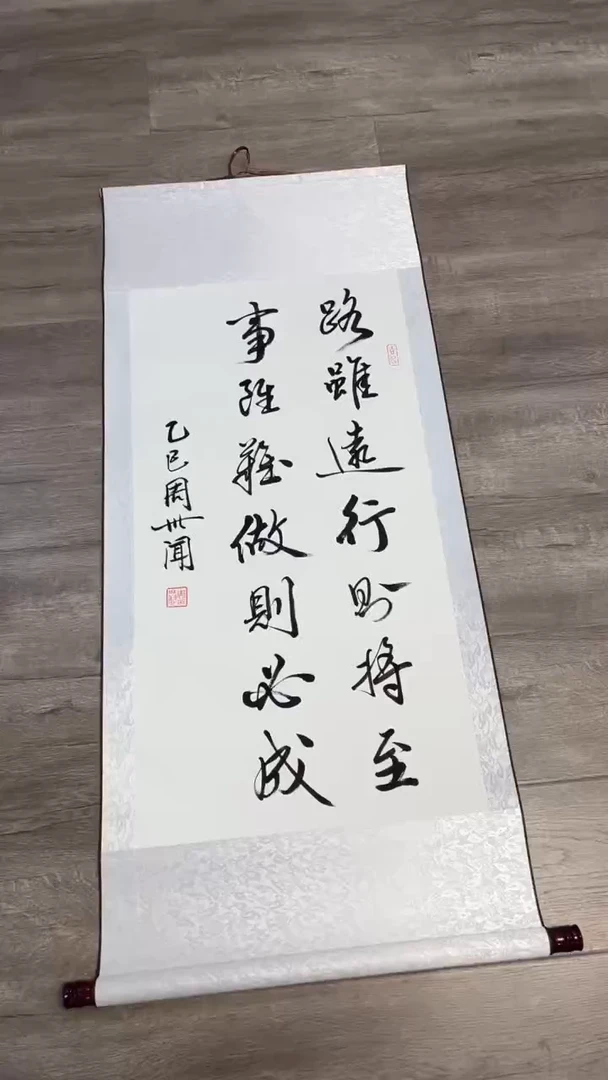 路雖遠行則將至
事雖難做則必成
乙巳周世闻